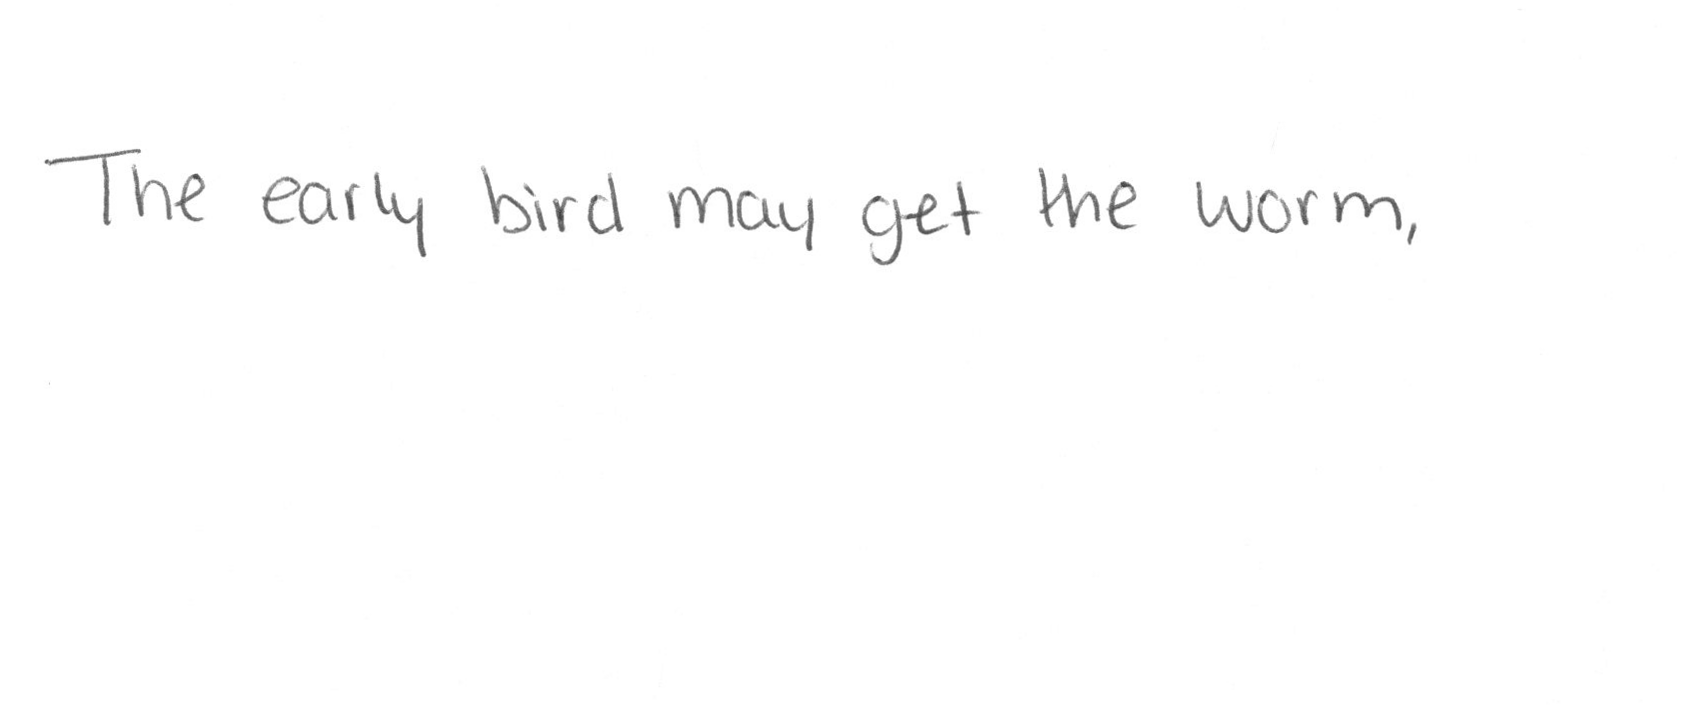 The early bird may get the worm,